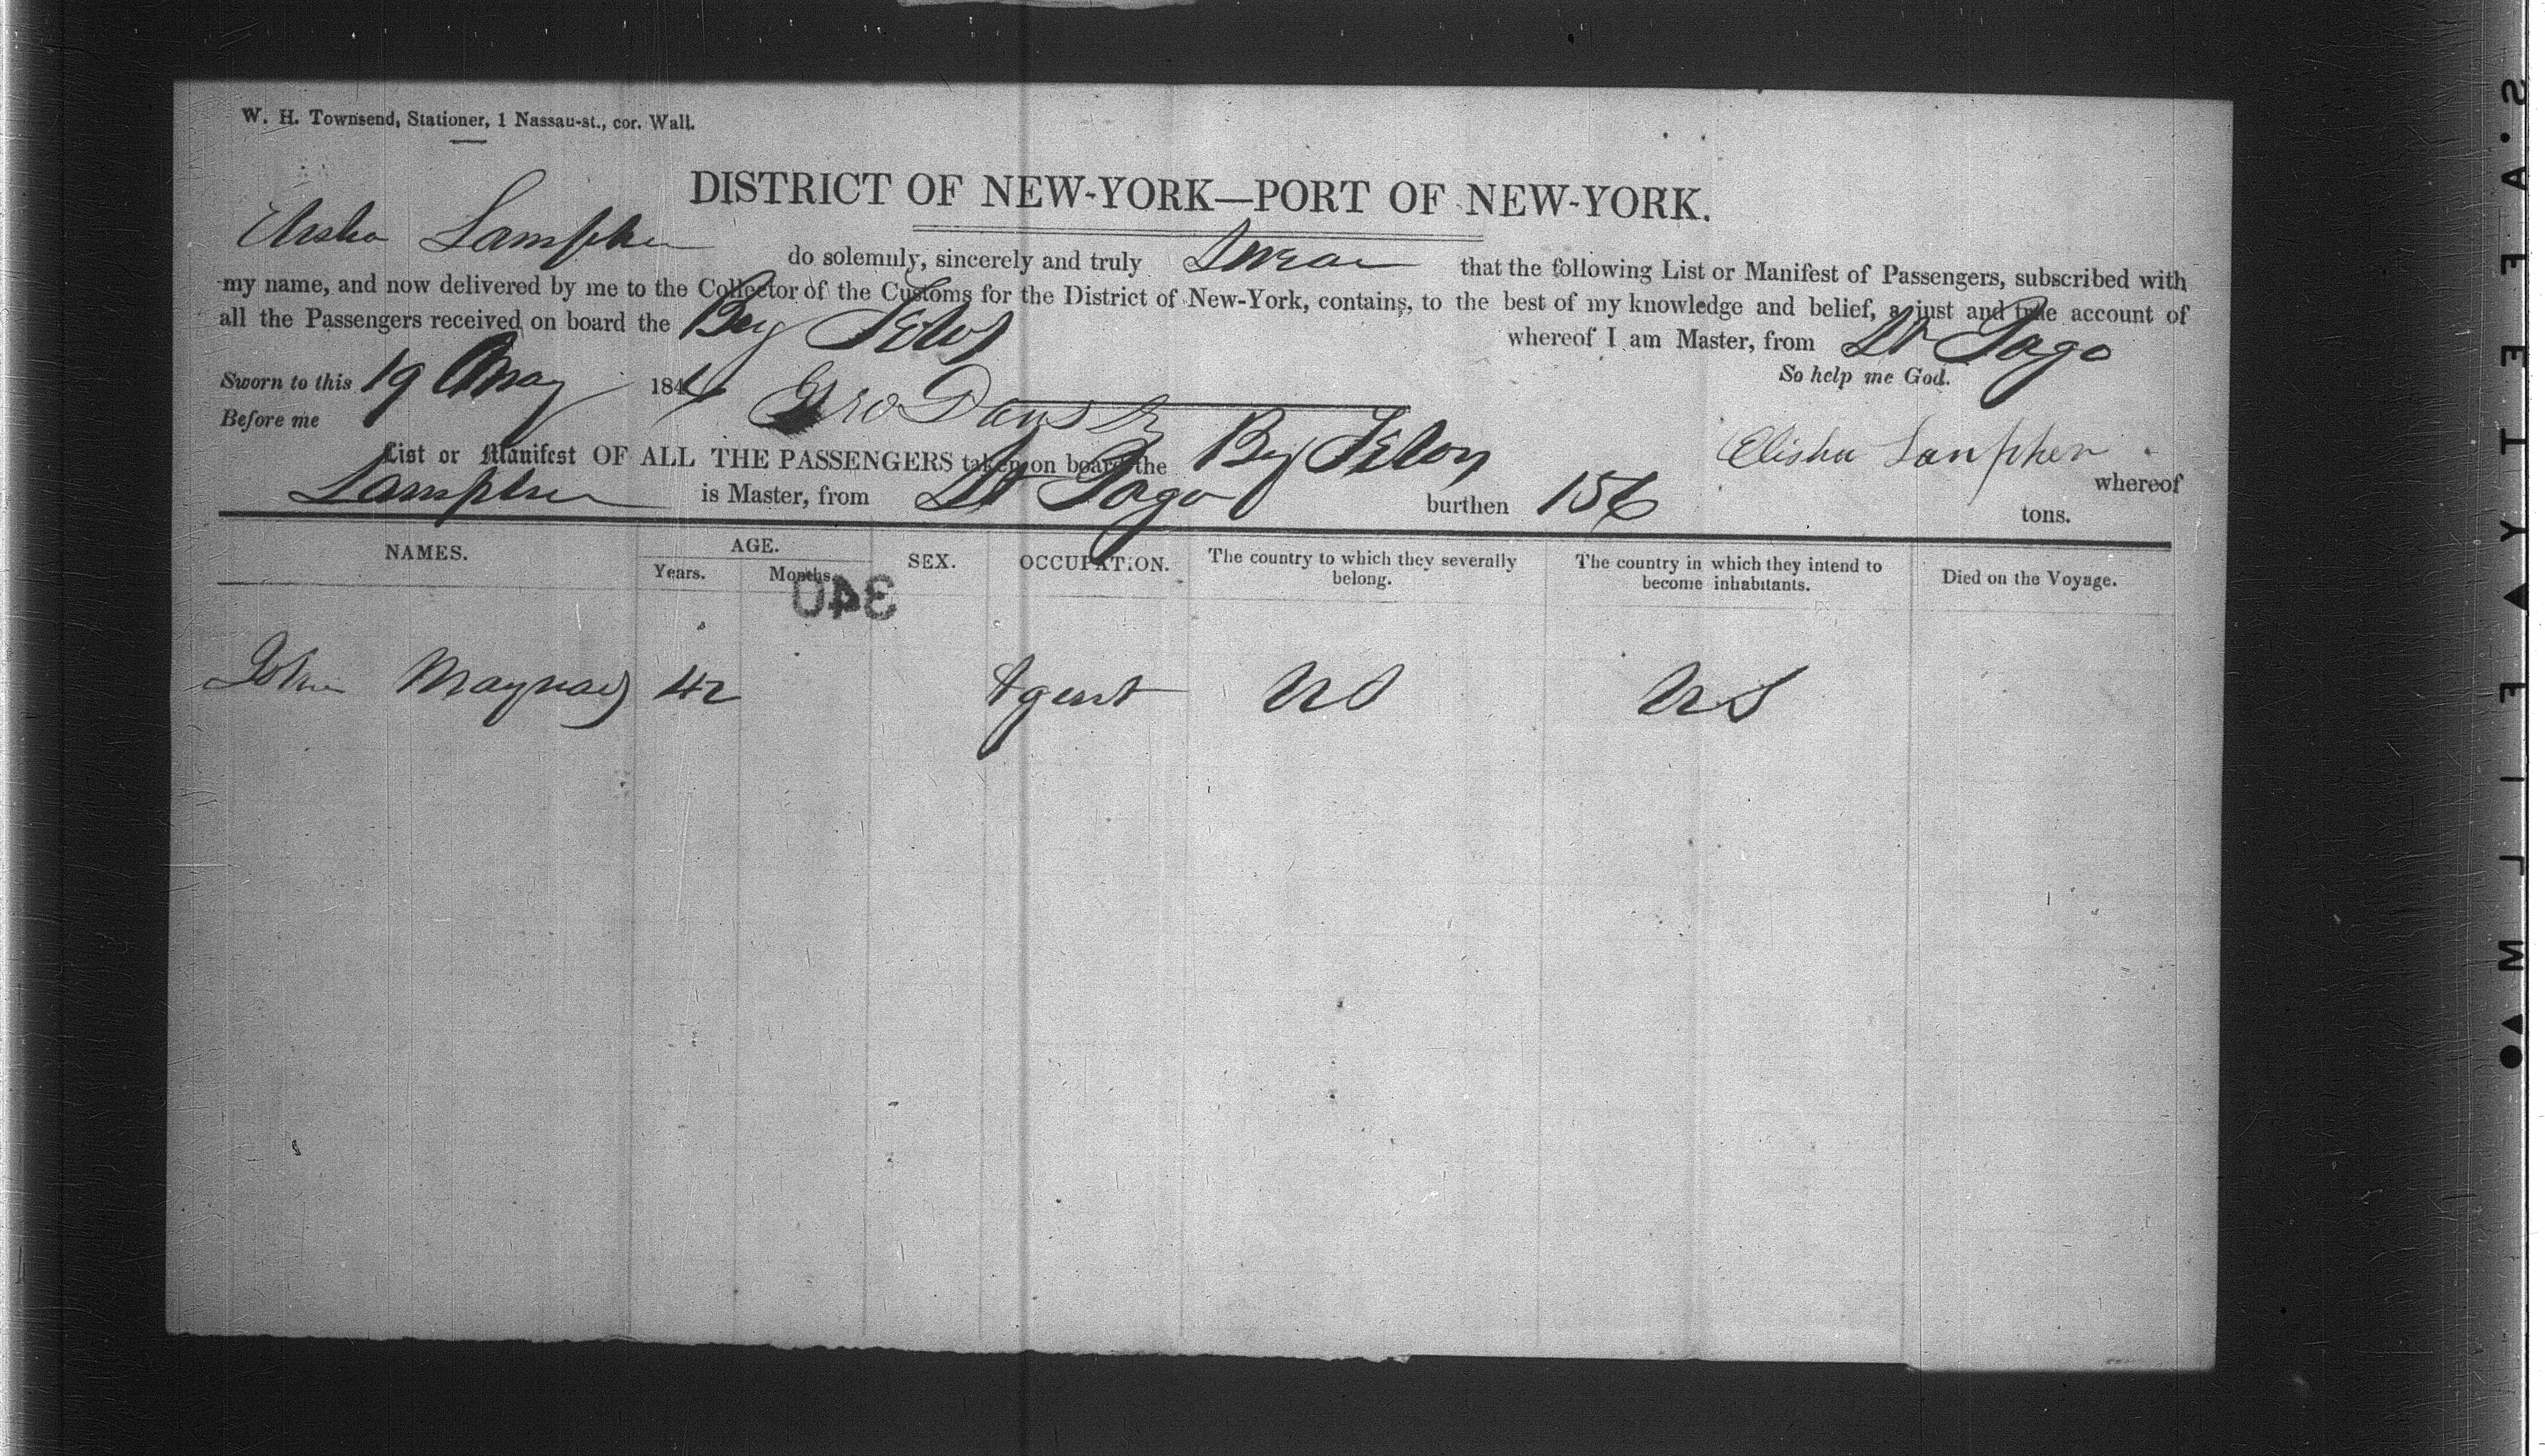 W. H. Townsend, Stationer, 1 Nassau-st., cor. Wall.
DISTRICT OF NEW-YORK—PORT OF NEW-YORK.
Elisha Lampher do solemnly, sincerely and truly Swear that the following List or Manifest of Passengers, subscribed with
my name, and now delivered by me to the Collector of the Customs for the District of New-York, contains, to the best of my knowledge and belief, a just and true account of
all the Passengers received on board the Brig whereof I am Master, from St Jago
So help me God.
Sworn to this 19 May 1844 Geo
Before me
Elisha Lanpher
List or Manifest OF ALL THE PASSENGERS taken on board the Brig whereof
Lampher is Master, from St Jago burthen 156 tons.
NAMES. AGE. SEX. OCCUPATION. The country to which they severally belong. The country in which they intend to become inhabitants. Died on the Voyage.
Years. Months.
340
John Maynard 42 Agent US US